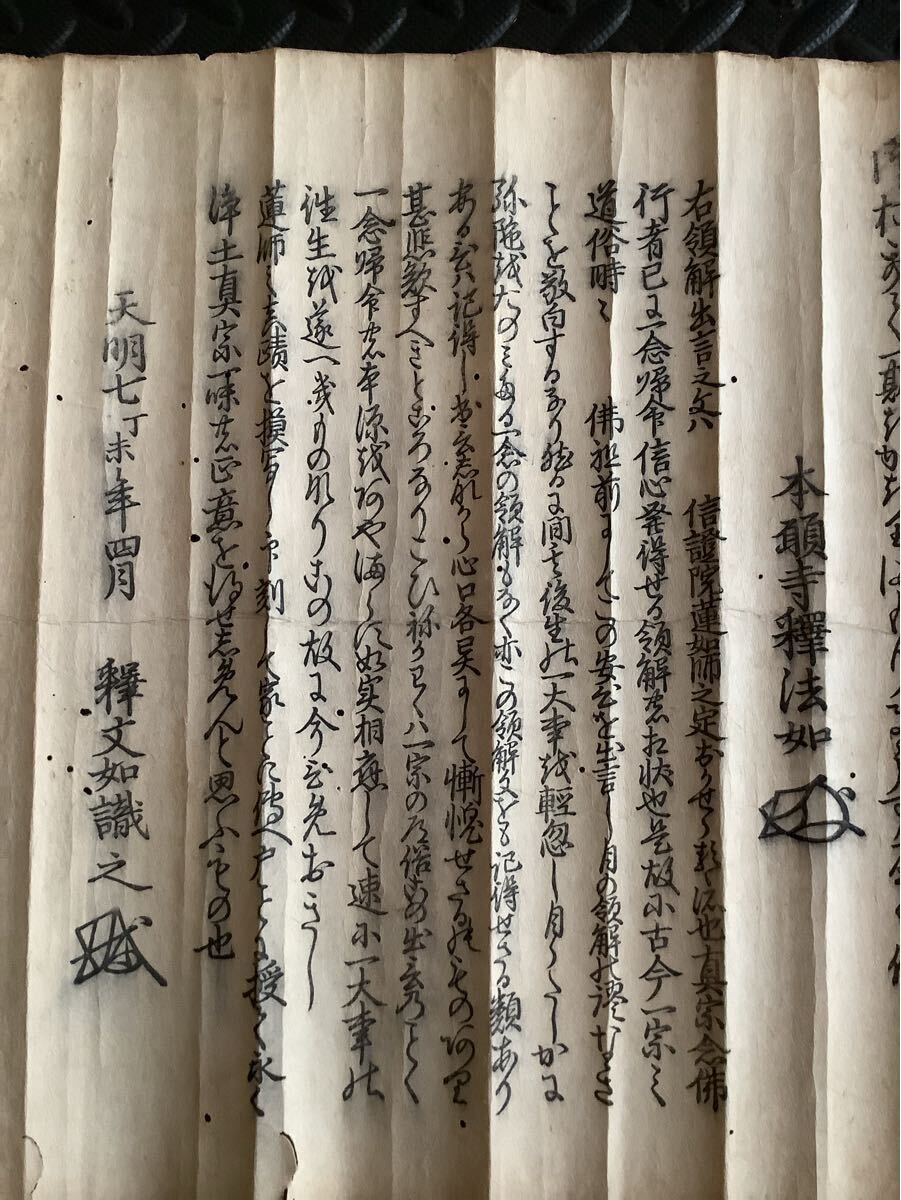 本願寺釋法如
右領解出言之文ハ 信證院蓮如師之定おかせらるゝ所也真宗念佛
行者已に一念帰命信心発得せる領解の相状也是故に古今一宗之
道俗時々 佛祖前にしてこの安心を出言し自の領解の謬なき
ことを敬白するなり然るに間には後生の一大事を軽忽し自らたしかに
弥陀をたのミたる一念の領解もなく亦この領解文をも記得せさる類あり
あるひハ記得し出言しなから心口各異にして慚愧せさるものあり
甚悲歎すへきところなりこひねかわくハ一宗の道俗この出言のことく
一念帰命の本源をあやまらす如実相應して速に一大事の
往生を遂へきものなりこの故に今
蓮師之真蹟を摸写し印刻して家ことに戸ことに授て永く
浄土真宗一味の正意を得せしめんと思ふもの也
天明七丁未年四月 釋文如識之